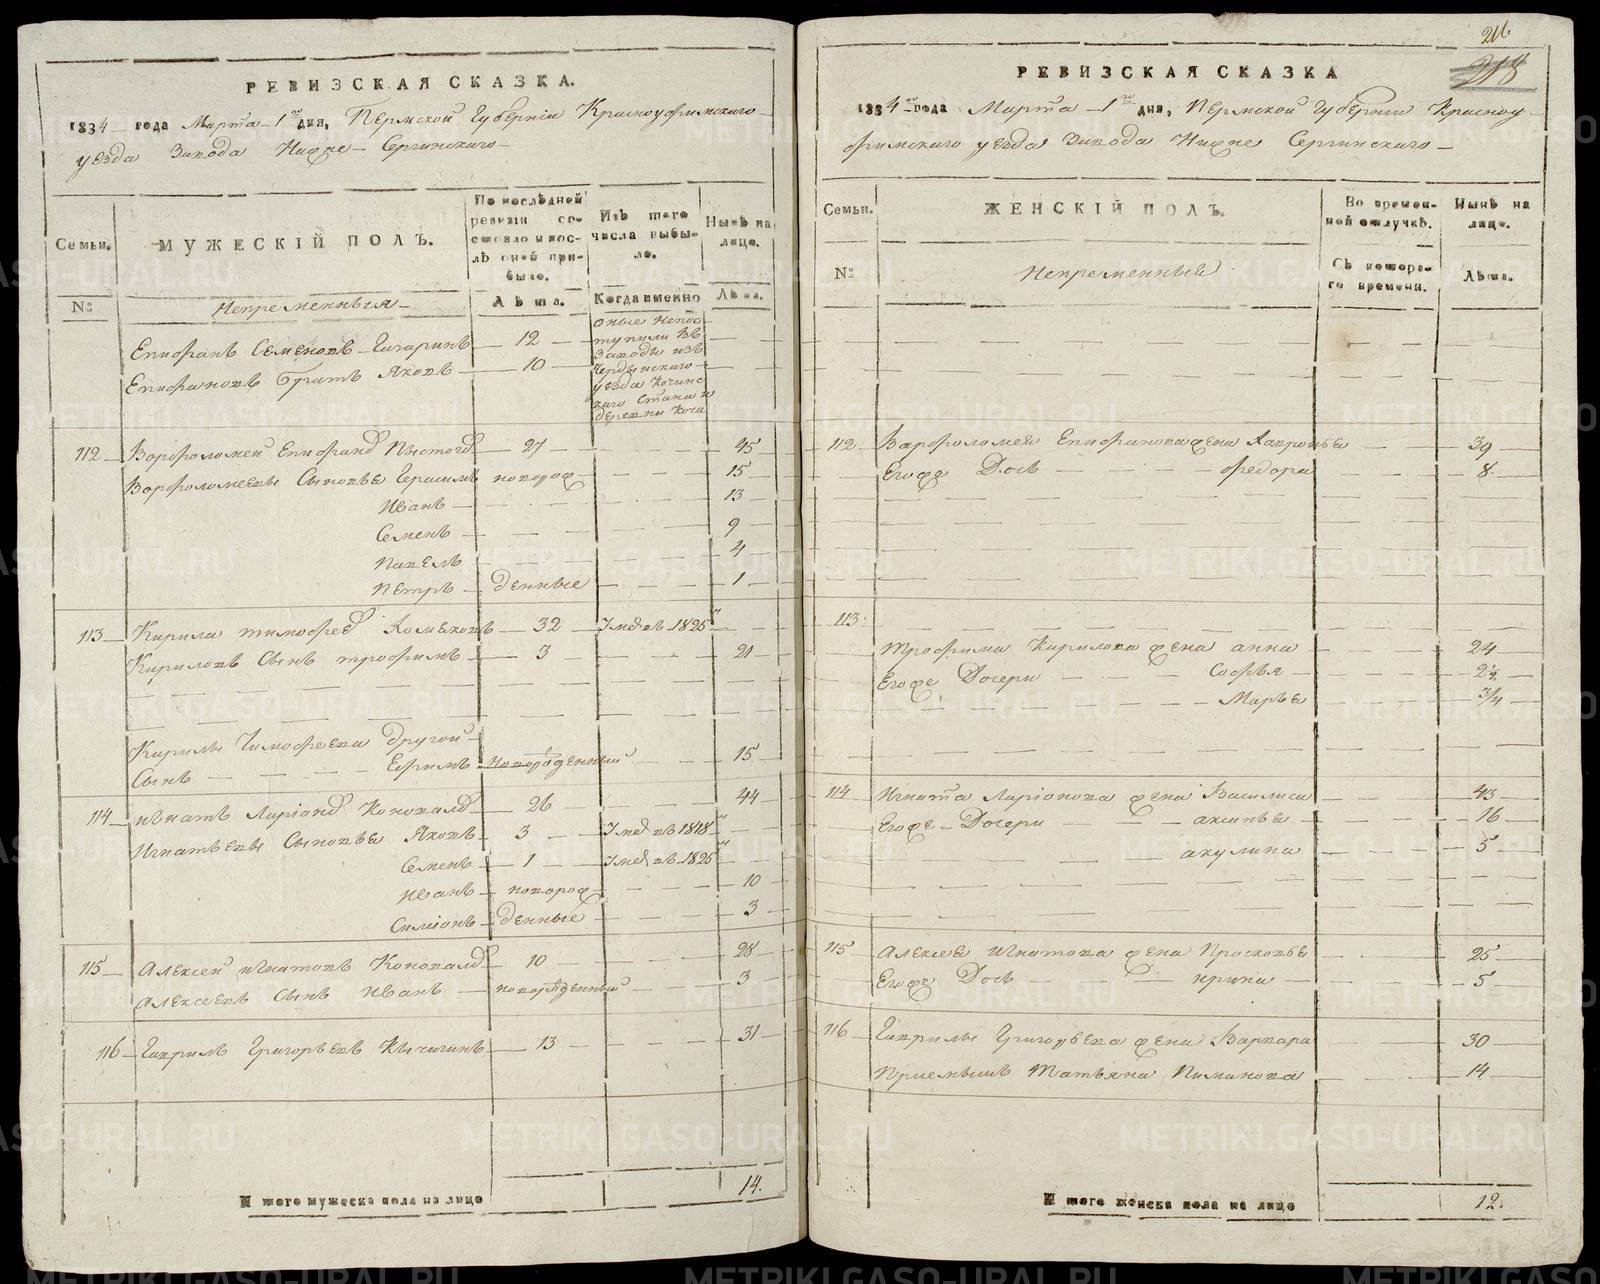 РЕВИЗСКАЯ СКАЗКА.
1834 года Марта 1го дня, Пермской Губерніи Красноуфимскаго
уезда Завода Нижне-Сергинскаго
Семьи. МУЖЕСКІЙ ПОЛЪ. По послѣдней ревизіи состояло и послѣ оной прибыло. Изъ того числа выбыло. Нынѣ на лицо.
№ Непременныя Лѣта. Когда именно Лѣта.
Епифанъ Семеновъ 12
Епифановъ Братъ Яковъ 10
оные непос
тупили въ
Заводы изъ
Чердынского
уезда Кочинс
каго Стана и
деревни Кочи
112 Ворфоломей Епифанов 27 45
Ворфоломеевы Сыновья Герасимъ новорож 15
Иванъ 13
Семенъ 9
Павелъ 4
Петръ денные 1
113 Кирила тимофеев 32 Умер въ 1825м
Кириловъ Сынъ трофимъ 3 21
Кирилы Тимофеева другой
Сынъ Ефимъ новорожденный 15
114 игнатъ Ларіонов Коновалов 26 44
Игнатьевы Сыновья Яковъ 3 Умер въ 1818м
Семенъ 1 Умер въ 1825м
иванъ новорож 10
Симіонъ денные 3
115 Алексей игнатовъ Коновалов 10 28
Алексеевъ Сынъ иванъ новорожденный 3
116 Гаврилъ Григорьевъ Кычигинъ 13 31
И того мужеска пола на лицо 14.
216
218
РЕВИЗСКАЯ СКАЗКА
1834го года Марта 1го дня, Пермской Губерніи Красноу
фимскаго уезда Завода Нижне Сергинскаго
Семьи. ЖЕНСКІЙ ПОЛЪ. Во временной отлучкѣ. Нынѣ на лицо.
№ Непременныя Съ котораго времени. Лѣта.
112 Варфоломея Епифанова жена Хавронья 39
Егоже Дочь федора 8
113.
трофима Кирилова жена анна 24
Егоже Дочери Софья 2½
Марья 3/4
114 Игната Ларіонова жена Василиса 43
Егоже Дочери аксинья 16
акулина 5
115 Алексея игнатова жена Прасковья 25
Егоже Дочь ирина 5
116 Гаврилы Григорьева жена Варвара 30
Приемышъ Татьяна Пиманова 14
И того женска пола на лицо 12.
METRIKI.GASO-URAL.RU